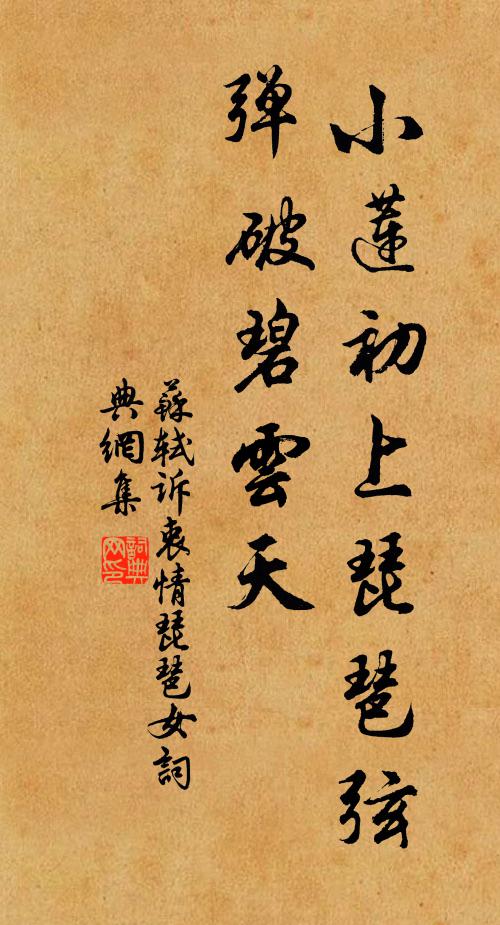 小蓮初上琵琶弦
弹破碧雲天
蘇軾訴衷情琵琶女詞
典網集
詞典网印